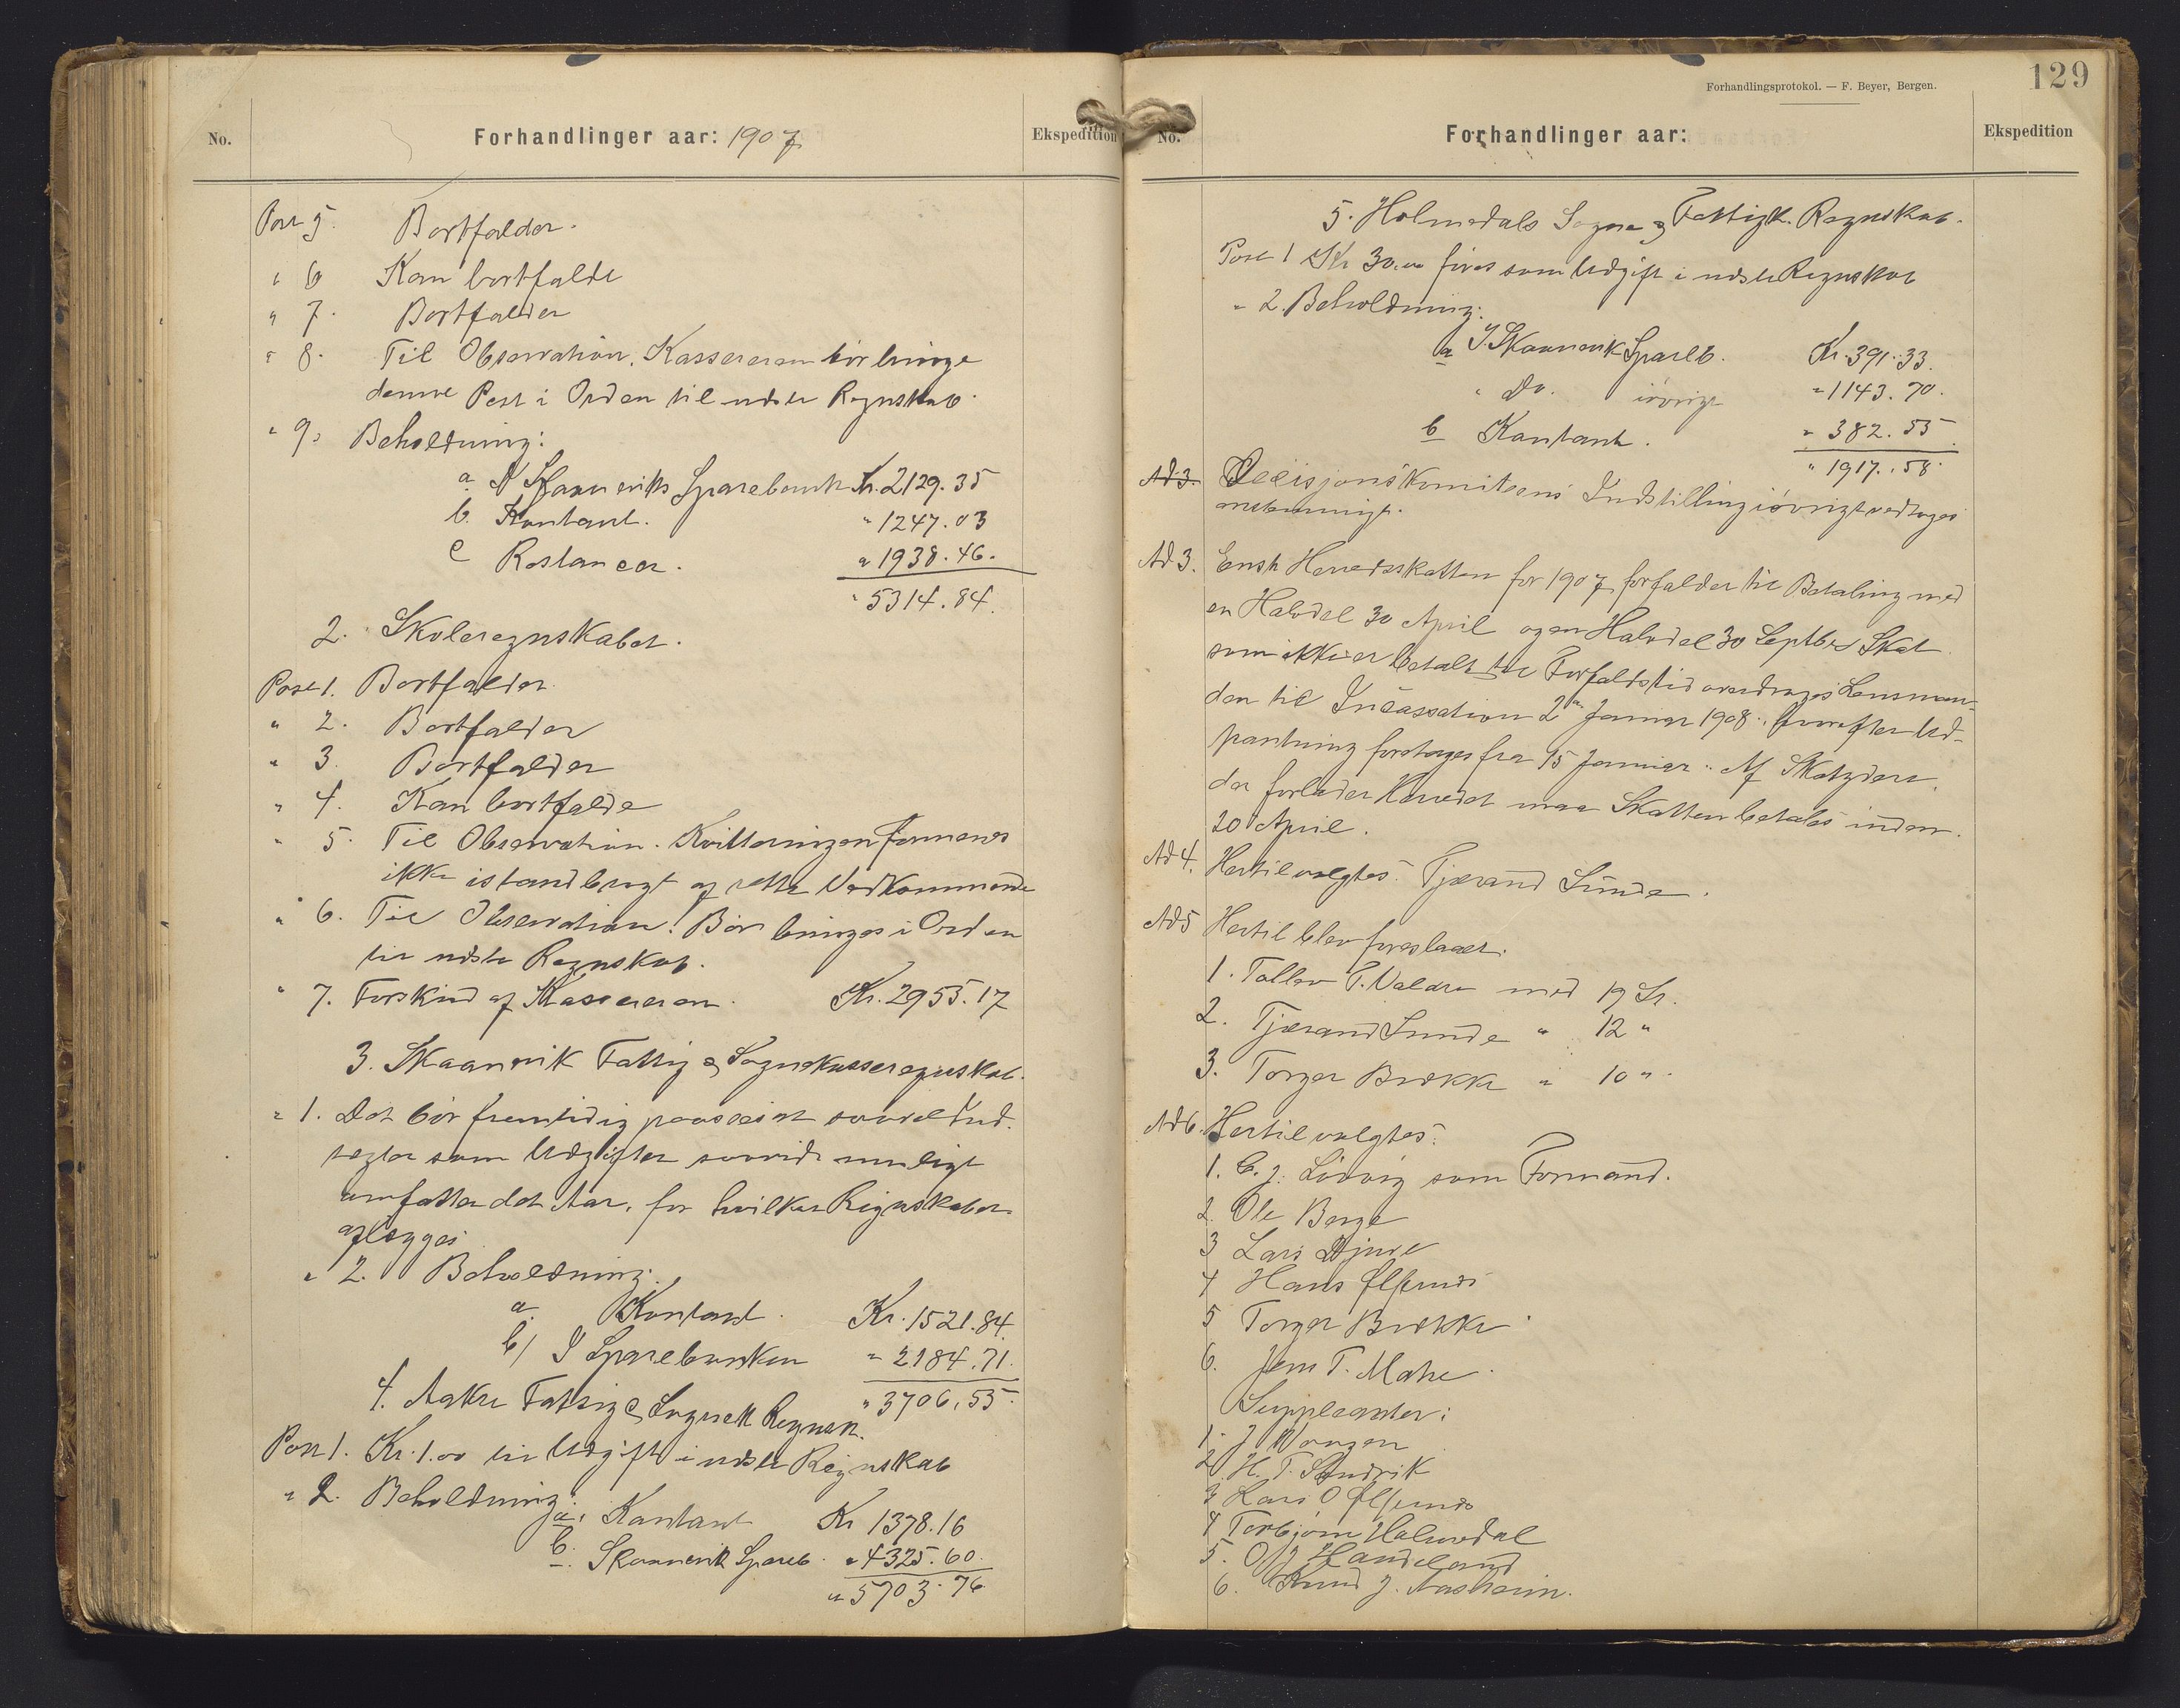 No.
Forhandlinger aar: 1907
Ekspedition
Post 5. Bortfalder.
" 6 Kan bortfalde
" 7. Bortfalder
" 8. Til Observation. Kassereren bør bringe
denne Post i Orden til næste Regnskab.
" 9. Beholdning:
a. I Skaaneviks Sparebank Kr. 2129.35
b. Kontant. " 1247.03
c Restancer. " 1938.46.
" 5314.84.
2. Skoleregnskabet.
Post 1. Bortfalder
" 2. Bortfalder
" 3. Bortfalder
" 4. Kan bortfalde
" 5. Til Observation. Kvitteringen formenes
ikke istandbragt af rette Vedkommende
" 6. Til Observation. Bør bringes i Orden
til næste Regnskab.
" 7. Forskud af Kassereren. Kr. 2955.17
3. Skaanevik Fattig & Sognekasseregnskab.
" 1. Det bør fremtidig paasees at saavel Ind-
tægter som Udgifter saavidt muligt
omfatter det Aar, for hvilket Regnskabet
aflægges
" 2. Beholdning:
a. Kontant. Kr. 1521.84.
b) I Sparebanken " 2184.71.
" 3706.55.
4. Aakre Fattig & Sognek. Regnsk.
Post 1. Kr. 1.00 til Udgift i næste Regnskab
" 2. Beholdning:
a. Kontant Kr 1378.16
b. Skaanevik Spareb. " 4325.60.
" 5703.76
Forhandlingsprotokol. — F. Beyer, Bergen.
129
No.
Forhandlinger aar:
Ekspedition
5. Holmedals Sogne & Fattigk. Regnskab.
Post 1 Kr 30.00 føres som Udgift i næste Regnskab
" 2. Beholdning:
a I Skaanevik Spareb. Kr. 391.33.
" Do. iøvrigt " 1143.70.
b Kontant. " 382.55.
" 1917.58.
Ad 3. Decisjonskomiteens Indstilling iøvrigt vedtages
enstemmigt.
Ad 3. Enst Herredsskatten for 1907 forfalder til Betaling med
en Halvdel 30 April og en Halvdel 30 Septbr. Skat
som ikke er betalt til Forfaldstid overdrages Lensman-
den til Incassation 2den Januar 1908, hvorefter Ud-
pantning foretages fra 15 Januar. Af Skatydere,
der forlader Herredet maa Skatten betales inden
20 April.
Ad 4. Hertil valgtes: Tjerand Sunde.
Ad 5 Hertil blev foreslaaet:
1. Tollev T. Valdre med 19 St.
2. Tjerand Sunde " 12 "
3. Torger Brekke " 10 "
Ad 6. Hertil valgtes:
1. C. J. Løvvig som Formand.
2. Ole Berge
3 Lars Djuve
4 Hans Ølfernes
5 Torger Brekke
6. Jens T. Matre
Suppleanter:
1. J Vangen
2. H. T. Sandvik
3 Lars O. Ølfernes
4 Torbjørn Halvedal
5. O J Handeland
6. Knud J. Aasheim.